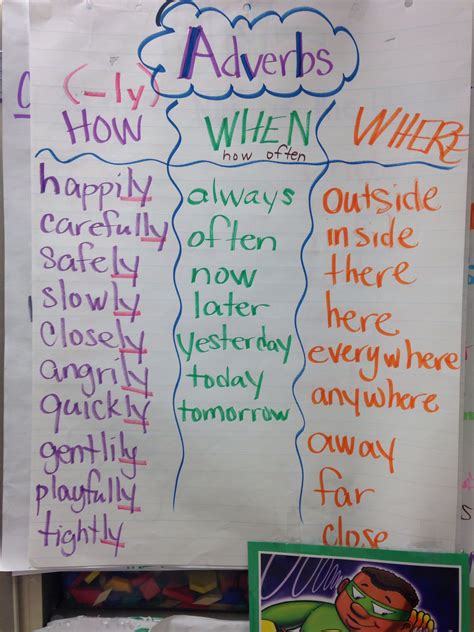 Adverbs
(-ly)
HOW
happily
carefully
safely
slowly
closely
angrily
quickly
gentlily
playfully
tightly
WHEN
how often
always
often
now
later
yesterday
today
tomorrow
WHERE
outside
inside
there
here
everywhere
anywhere
away
far
close